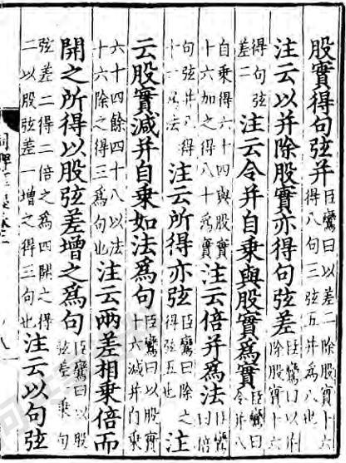 股實得句弦并臣鸞曰以差二除股實十六得八句三弦五并爲八也
注云以并除股實亦得句弦差臣鸞曰以并八除股實十六
得句弦差二注云令并自乘與股實爲實臣鸞曰令并八
自乘得六十四與股實十六加之得八十爲實注云倍并爲法臣鸞曰倍
句弦并八得十六爲法注云所得亦弦臣鸞曰除之得弦五也注
云股實減并自乘如法爲句臣鸞曰以股實十六減并自乘
六十四餘四十八以法十六除之得三爲句也注云兩差相乘倍而
開之所得以股弦差增之爲句臣鸞曰以股弦差一乘句
弦差二得二倍之爲四開之得二以股弦差一增之得三句也注云以句弦